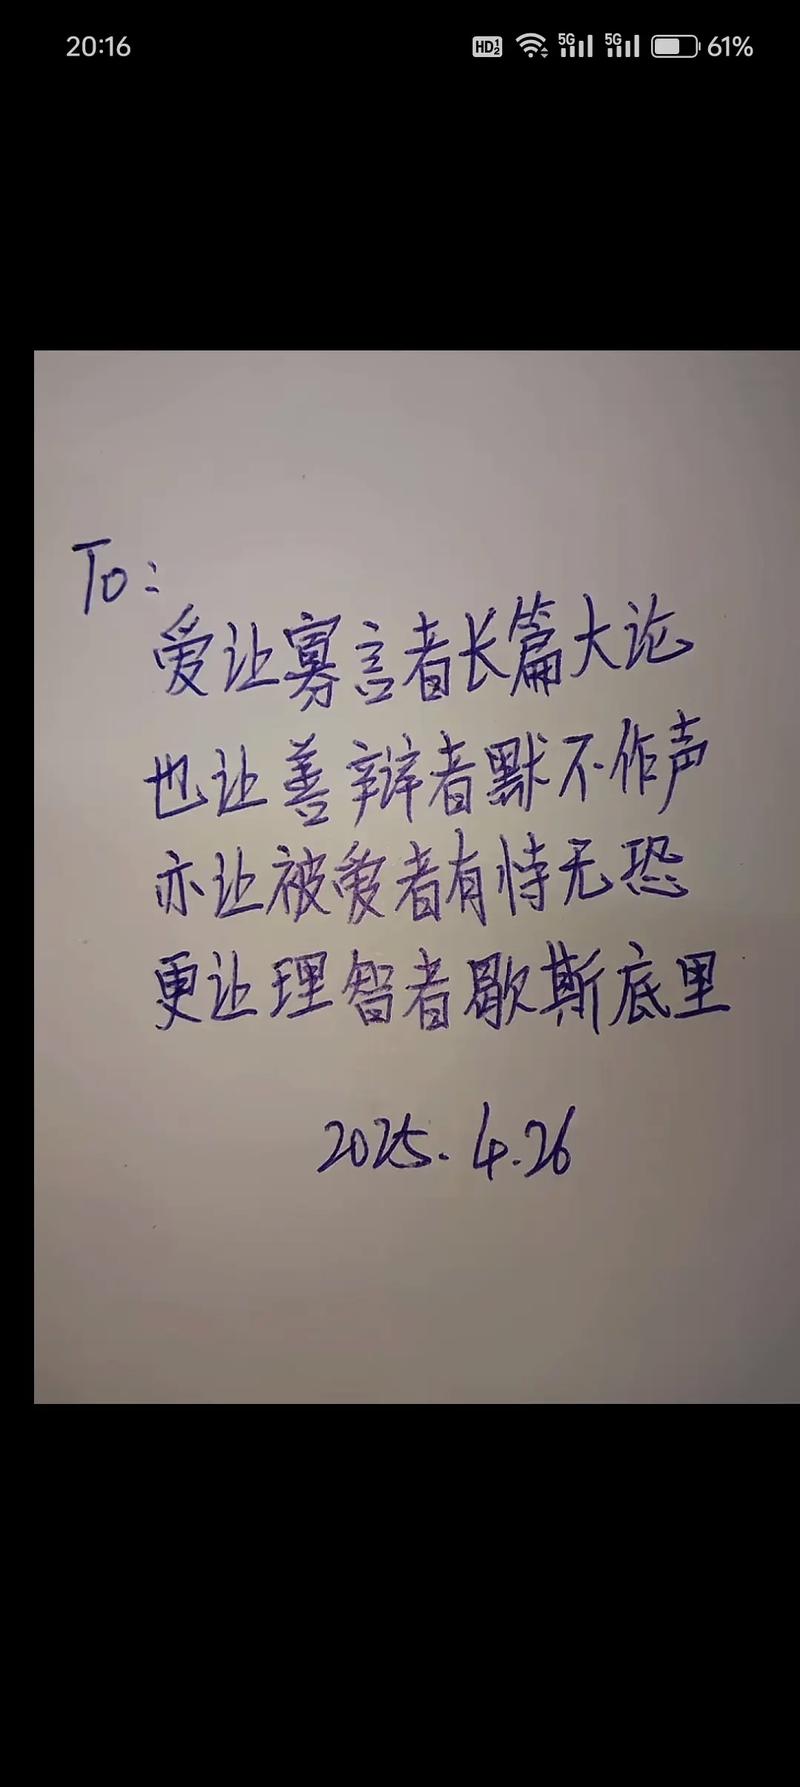 20:16 HD 1 2 5G 5G 61%
To:
爱让寡言者长篇大论
也让善辩者默不作声
亦让被爱者有恃无恐
更让理智者歇斯底里
2025.4.26